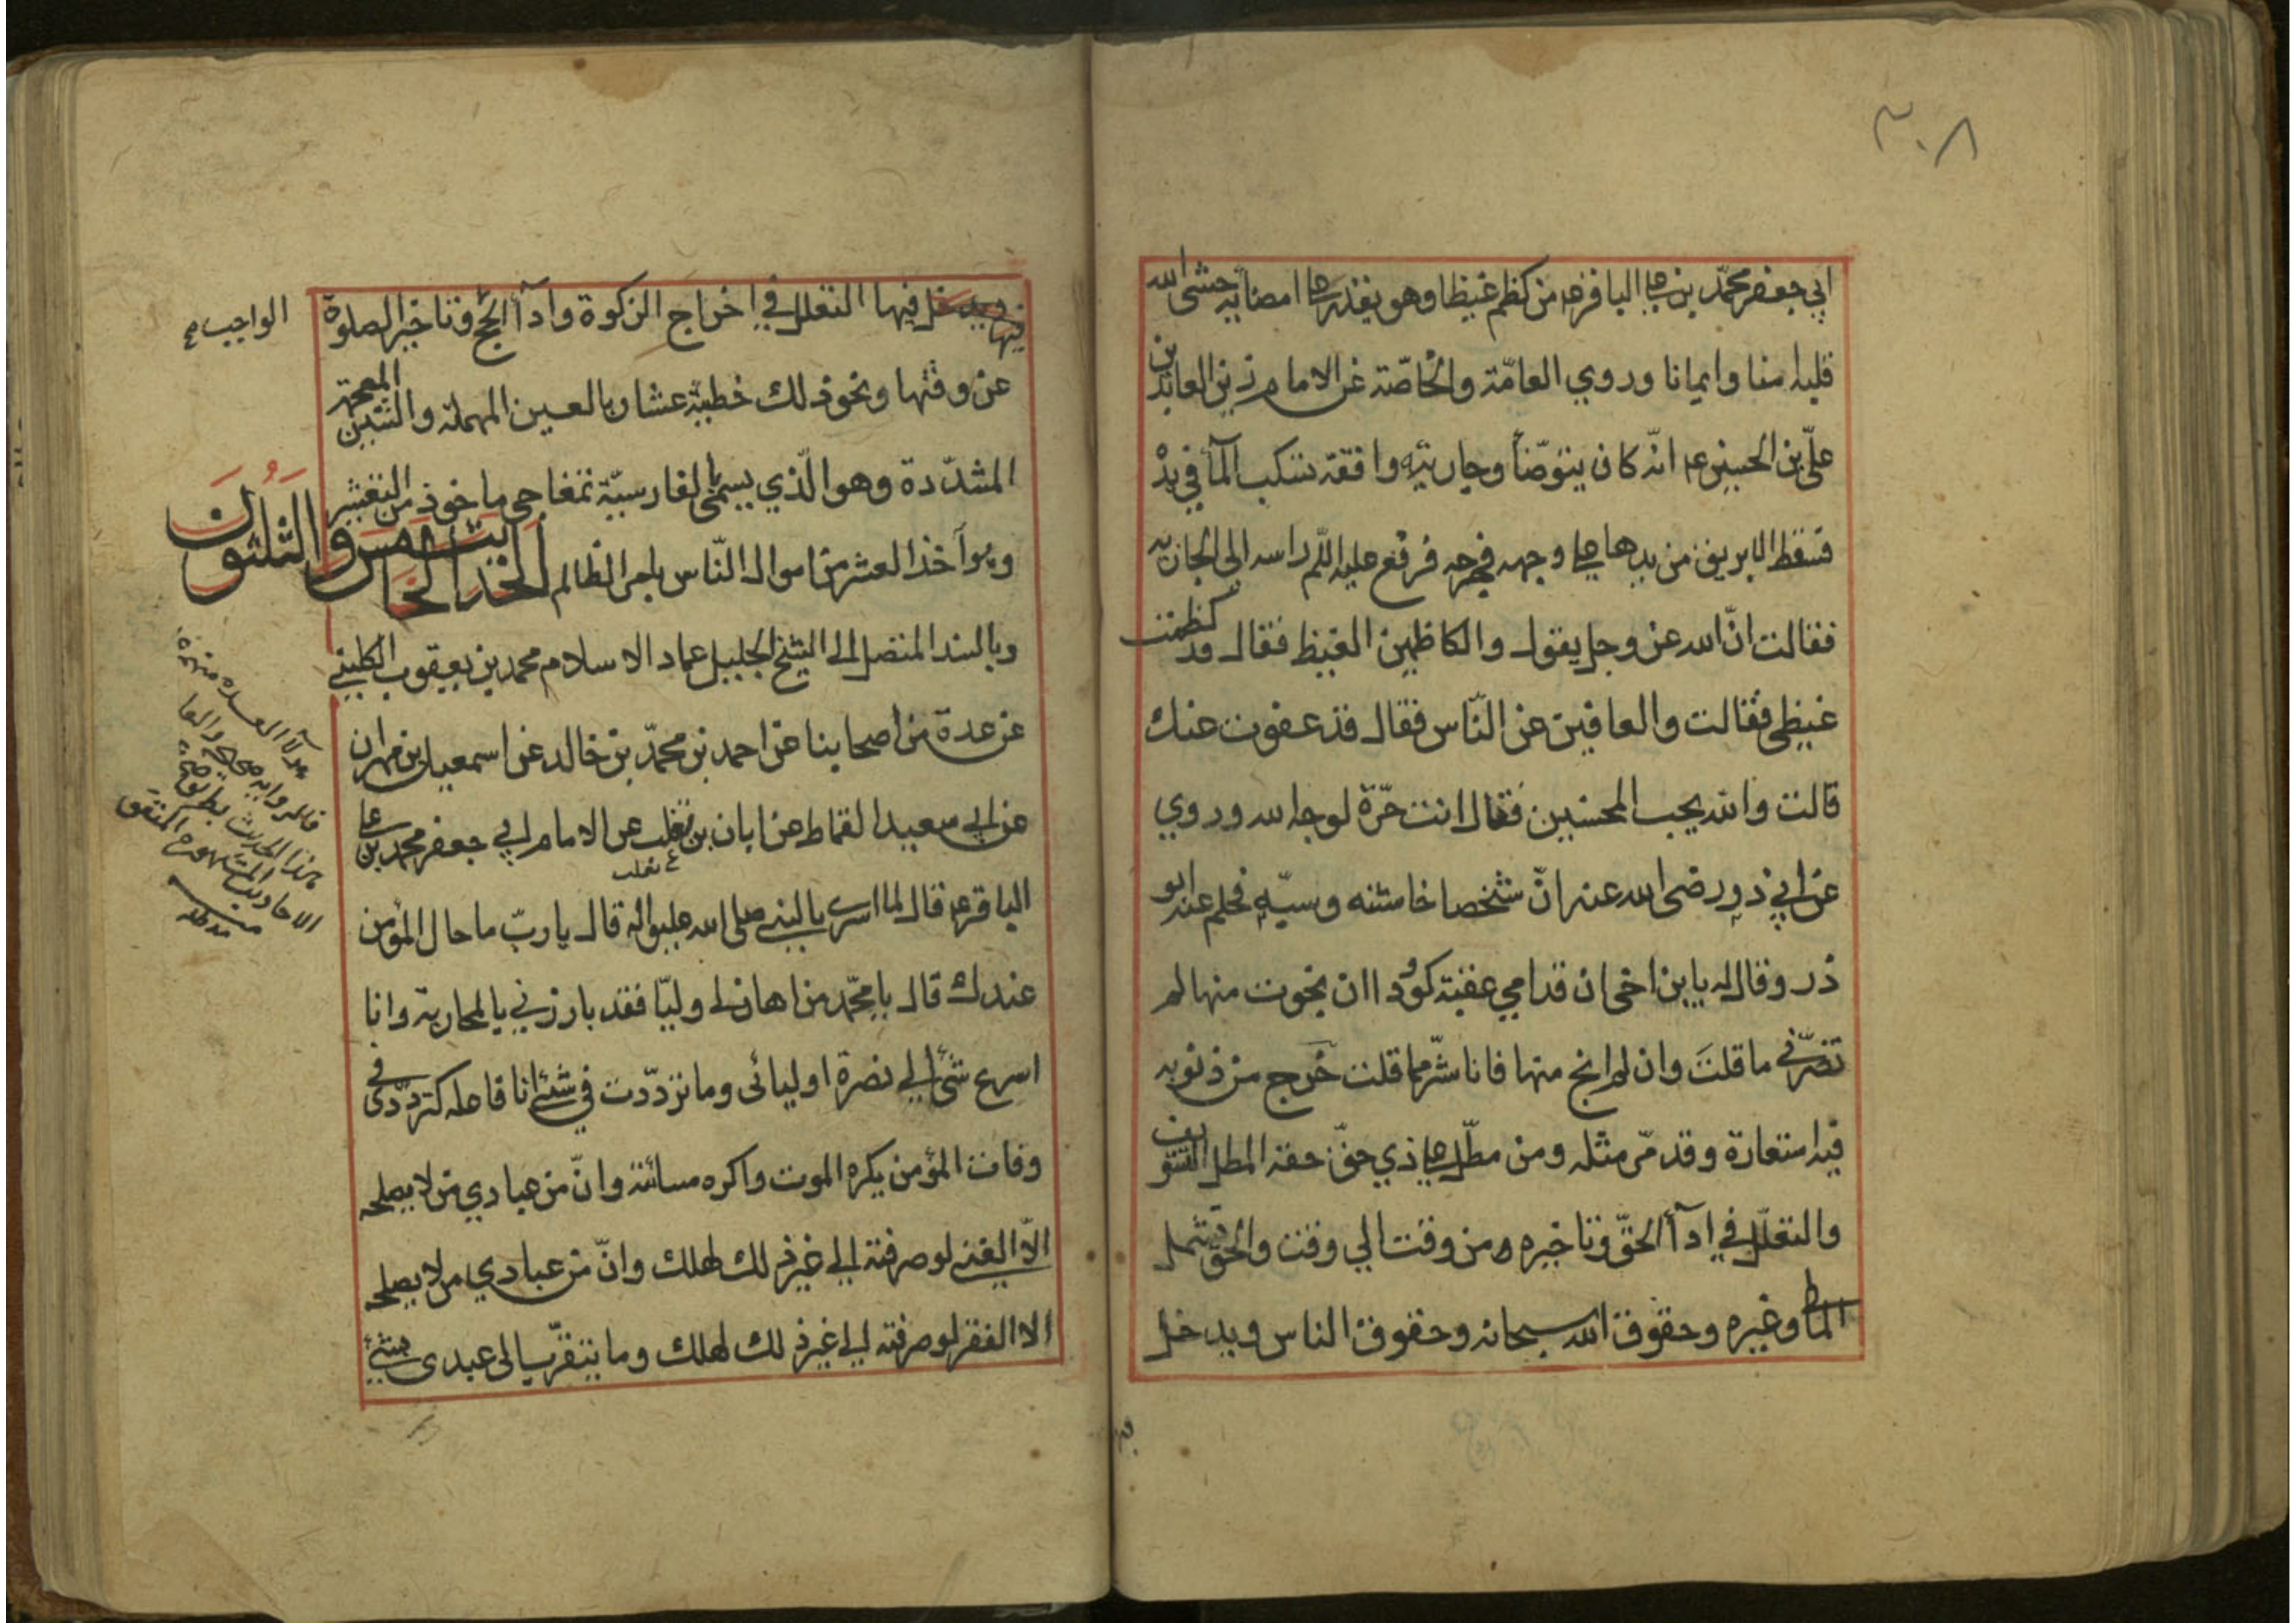 ٣٠٨
ابي جعفر محمّد بن على الباقر ع من كظم غيظا وهو يقدر على امضائه حشى الله
قلبه امنا وايمانا وروي العامّة والخاصّة عن الامام زين العابدين
علىّ بن الحسين ع انّه كان يتوضّأ وجاريته واقفة تسكب المآ في يده
فسقط الابريق من يدها على وجهه فجرحه فرفع عليه اللّم راسه الى الجاريه
فقالت انّ الله عز وجل يقول والكاظمين الغيظ فقال قد كظمت
غيظى فقالت والعافين عن النّاس فقال قد عفوت عنك
قالت والله يحب المحسنين فقال انت حرّة لوجه الله وروي
عن ابي ذر رضى الله عنه انّ شخصا خاشنه وسبّه فحلم عنه ابو
ذر وقال له يابن اخى ان قدامي عقبة كؤدا ان نجوت منها لم
تضرّنى ما قلت وان لم انج منها فانا شرّ مما قلت خرج من ذنوبه
فيه استعارة وقد مّر مثله ومن مطل على ذي حقّ حقه المطل التسويف
والتعلّل في ادآ الحقّ وتاخيره من وقت الي وقت والحق يشمل
المالى وغيره وحقوق الله سبحانه وحقوق الناس ويدخل
فيها
فيها التعلل في اخراج الزكوة وادآ الحج وتاخير الصلوة
الواجب
عن وقتها ونحو ذلك خطيئة عشار بالعين المهملة والشين المعجمة
المشدّدة وهو الّذي يسمى بالفارسيّة تمغاجى ماخوذ من التعشير
وهو آخذ العشر من اموال النّاس بامر الظالم الحديث الخامس والثلثون
وبالسند المتصل الى الشيخ الجليل عماد الاسلام محمد بن يعقوب الكلينى
عن عدة من اصحابنا عن احمد بن محمّد بن خالد عن اسمعيل بن مهران
عن ابى سعيد القماط عن ابان بن تغلب عن الامام ابي جعفر محمد بن على
تغلب
الباقر ع قال لما اسرى بالنبى صلى الله عليه واله قال يا ربّ ما حال المؤمن
عندك قال يا محمّد من اهان لى وليّا فقد بارزني بالمحاربة وانا
اسرع شئ الي نصرة اوليائى وما تردّدت في شئ انا فاعله كتردّدى فى
وفات المؤمن يكره الموت واكره مسائته وانّ من عبادي من لا يصلحه
الّا الغنى لو صرفته الى غير ذلك لهلك وانّ من عبادي من لا يصلحه
الا الفقر لو صرفته الى غير ذلك لهلك وما يتقرّب الى عبدى بشئ
هذا الحديث
الاحاديث المشهورة المتفق